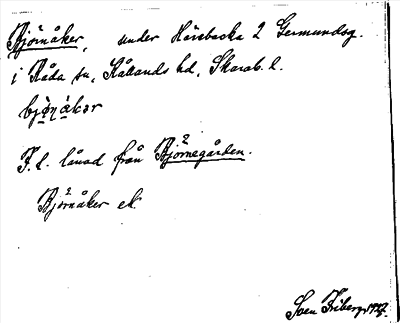 Björnåker, under Härsbacka 2 Germundsg.
i Råda sn, Kållands hd, Skarab. l.
F. l. lånad från Björnegården.
Björnåker ek
Sven Friberg 1927.